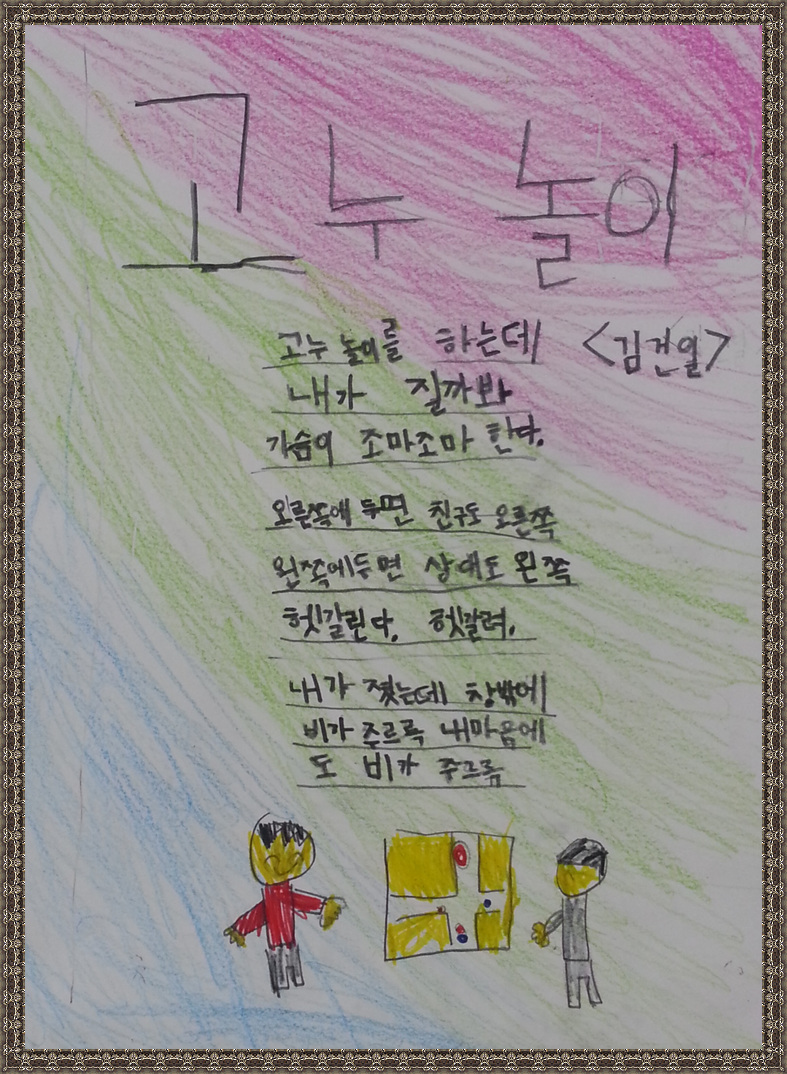 고누 놀이
<김건일>
고누 놀이를 하는데
내가 질까봐
가슴이 조마조마 한다.
오른쪽에 두면 친구도 오른쪽
왼쪽에두면 상대도 왼쪽
헷갈린다. 헷갈려.
내가 졌는데 창밖에
비가 주르륵 내마음에
도 비가 주르륵